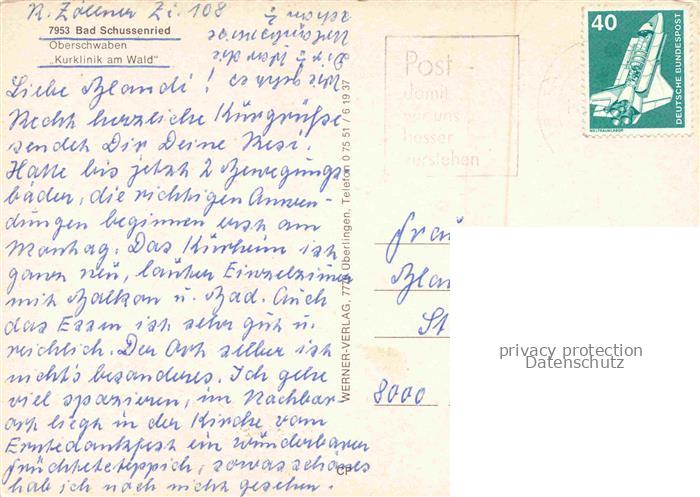 R. Zöllner Zi. 108
7953 Bad Schussenried
Oberschwaben
„Kurklinik am Wald"
Liebe Blandi!
Recht herzliche Kurgrüße
sendet Dir Deine Resi.
Hatte bis jetzt 2 Bewegungs-
bäder, die richtigen Anwen-
dungen beginnen erst am
Montag. Das Kurheim ist
ganz neu, lauter Einzelzimmer
mit Balkon u. Bad. Auch
das Essen ist sehr gut u.
reichlich. Der Ort selber ist
nicht's besonderes. Ich gehe
viel spazieren, im Nachbar-
ort liegt in der Kirche vom
Erntedankfest ein wunderbarer
Früchteteppich, sowas schönes
hab ich noch nicht gesehen.
Wie geht es
Dir u.
schon
WERNER-VERLAG, 7770 Überlingen, Telefon 0 75 51 / 6 19 37
CP
Post
damit
wir uns
besser
verstehen
40
DEUTSCHE BUNDESPOST
WELTRAUMLABOR
Frau
Blan
St
8000
privacy protection
Datenschutz